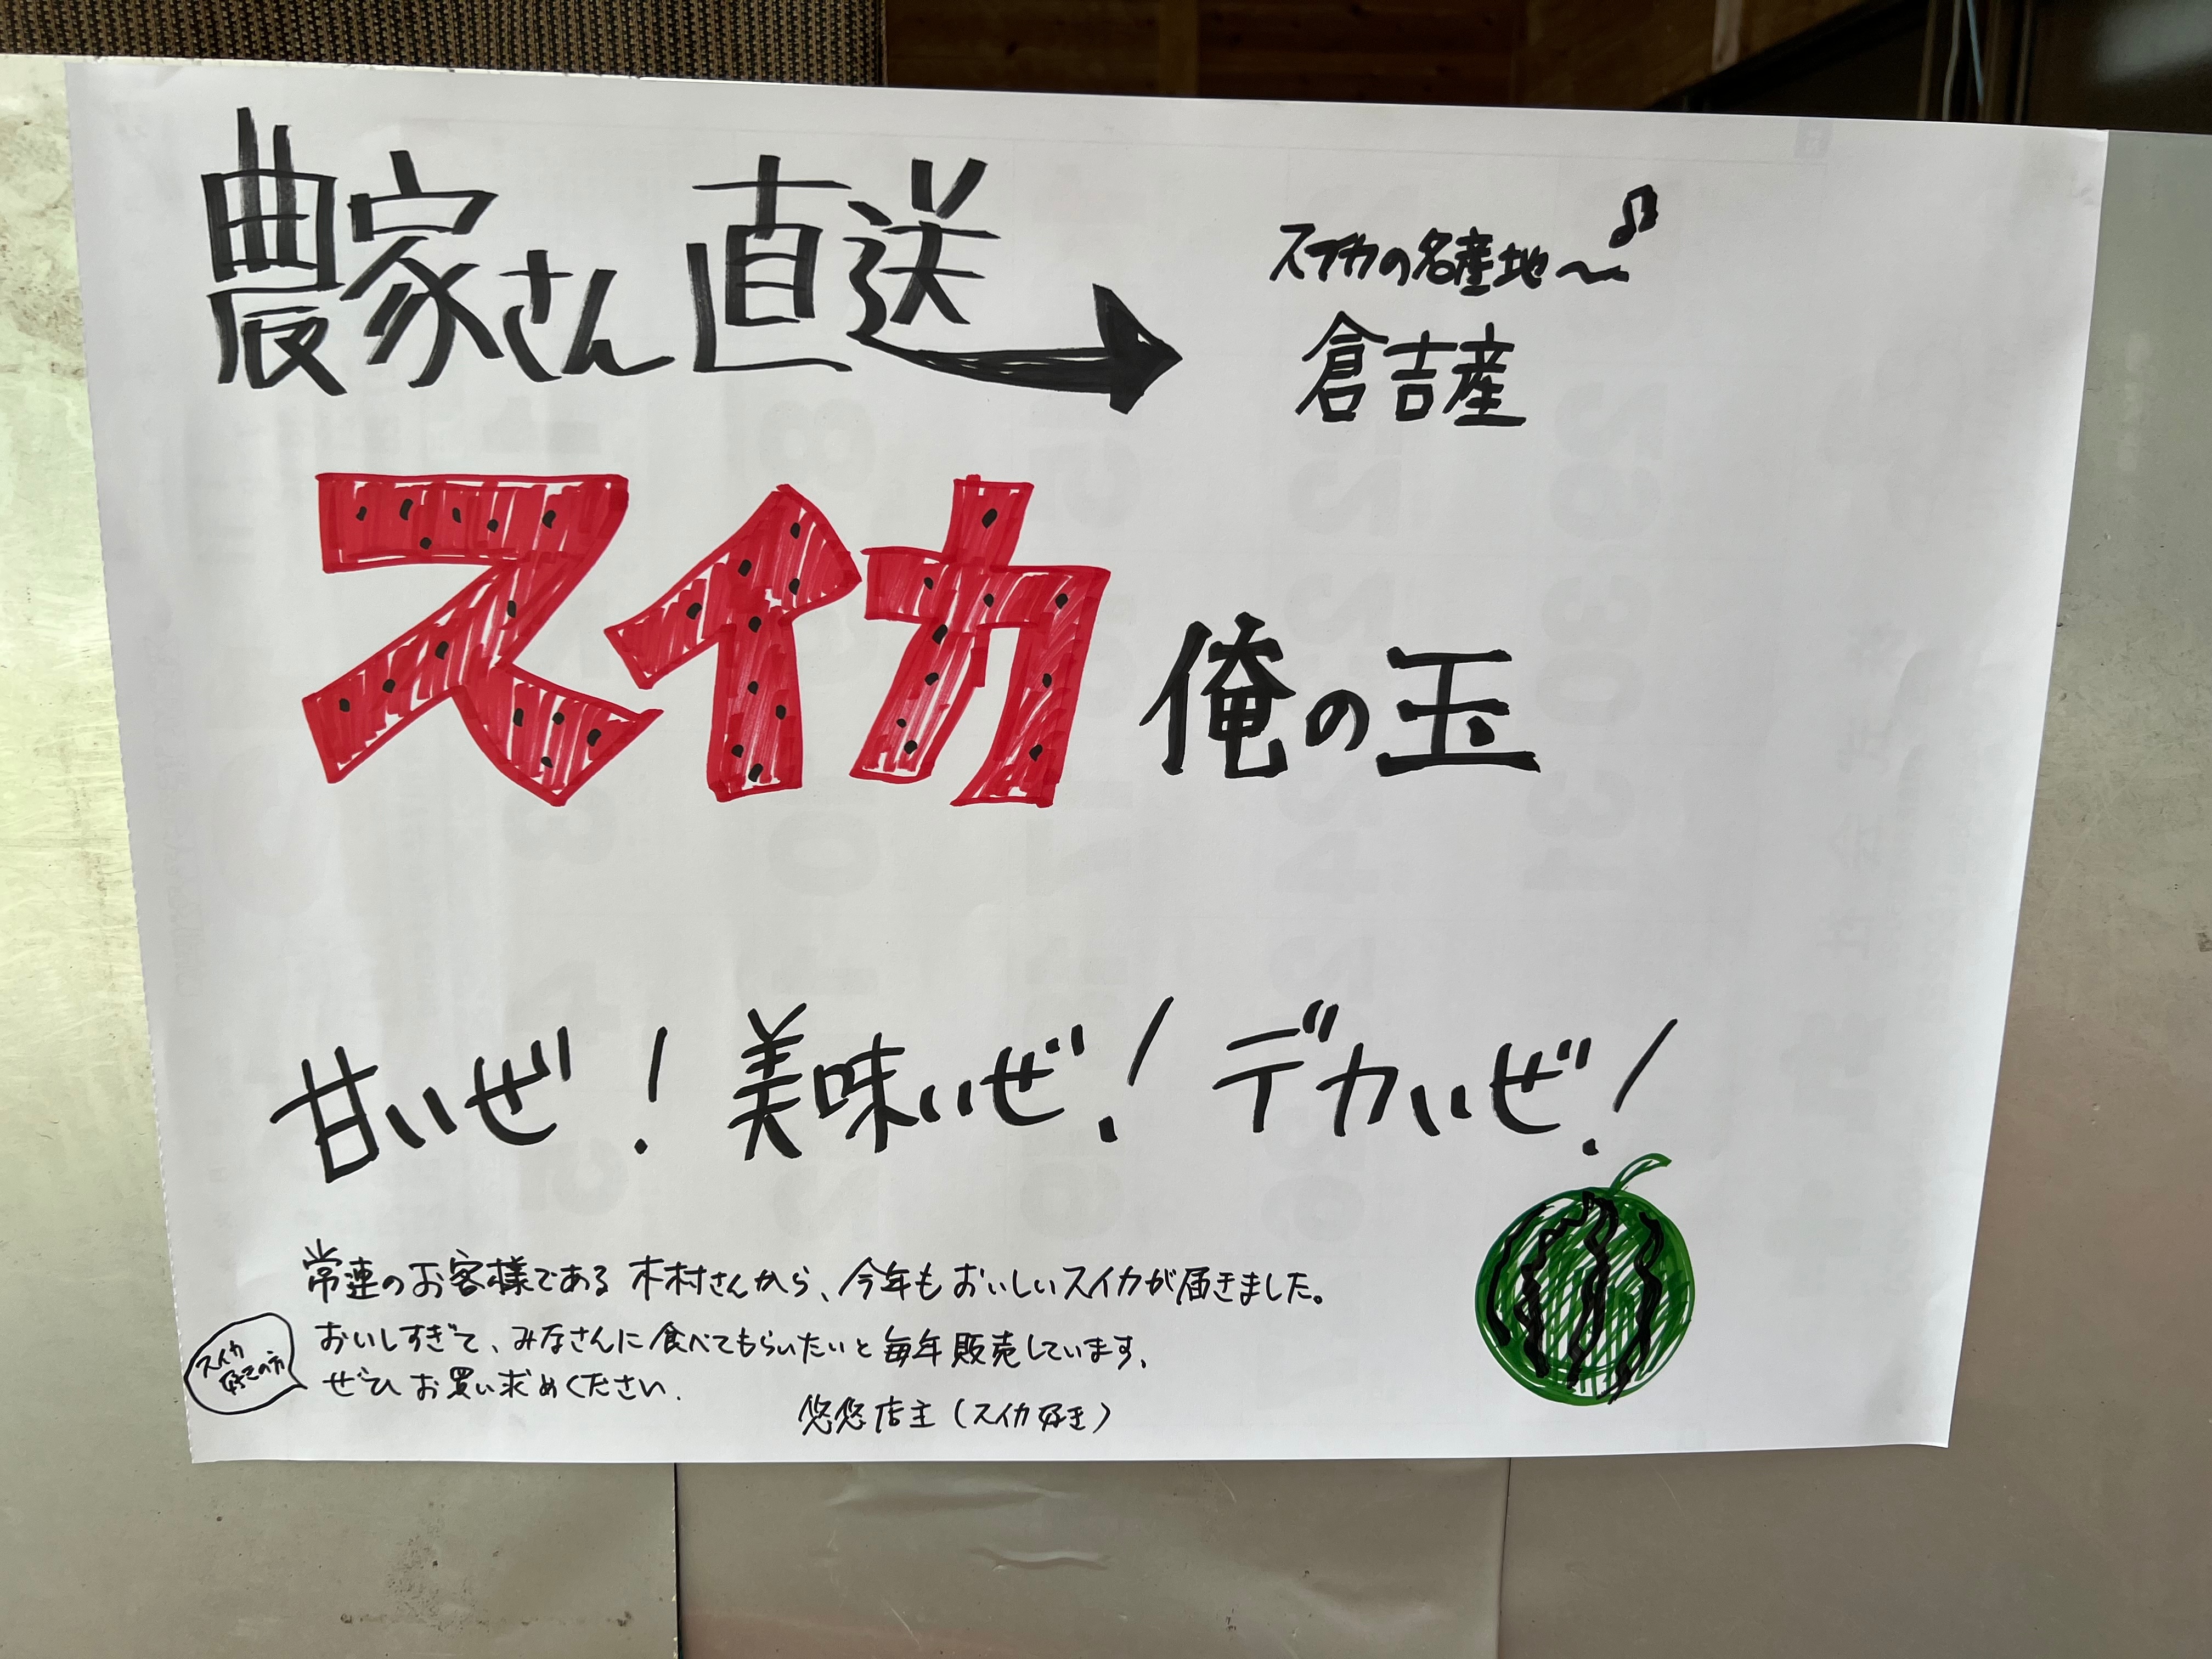 農家さん直送
スイカの名産地〜♫
倉吉産
スイカ 俺の玉
甘いぜ! 美味いぜ! デカいぜ!
常連のお客様である 木村さんから、今年もおいしいスイカが届きました。
おいしすぎて、みなさんに食べてもらいたいと毎年販売しています。
スイカ
好きの方
ぜひお買い求めください.
悠悠店主(スイカ好き)